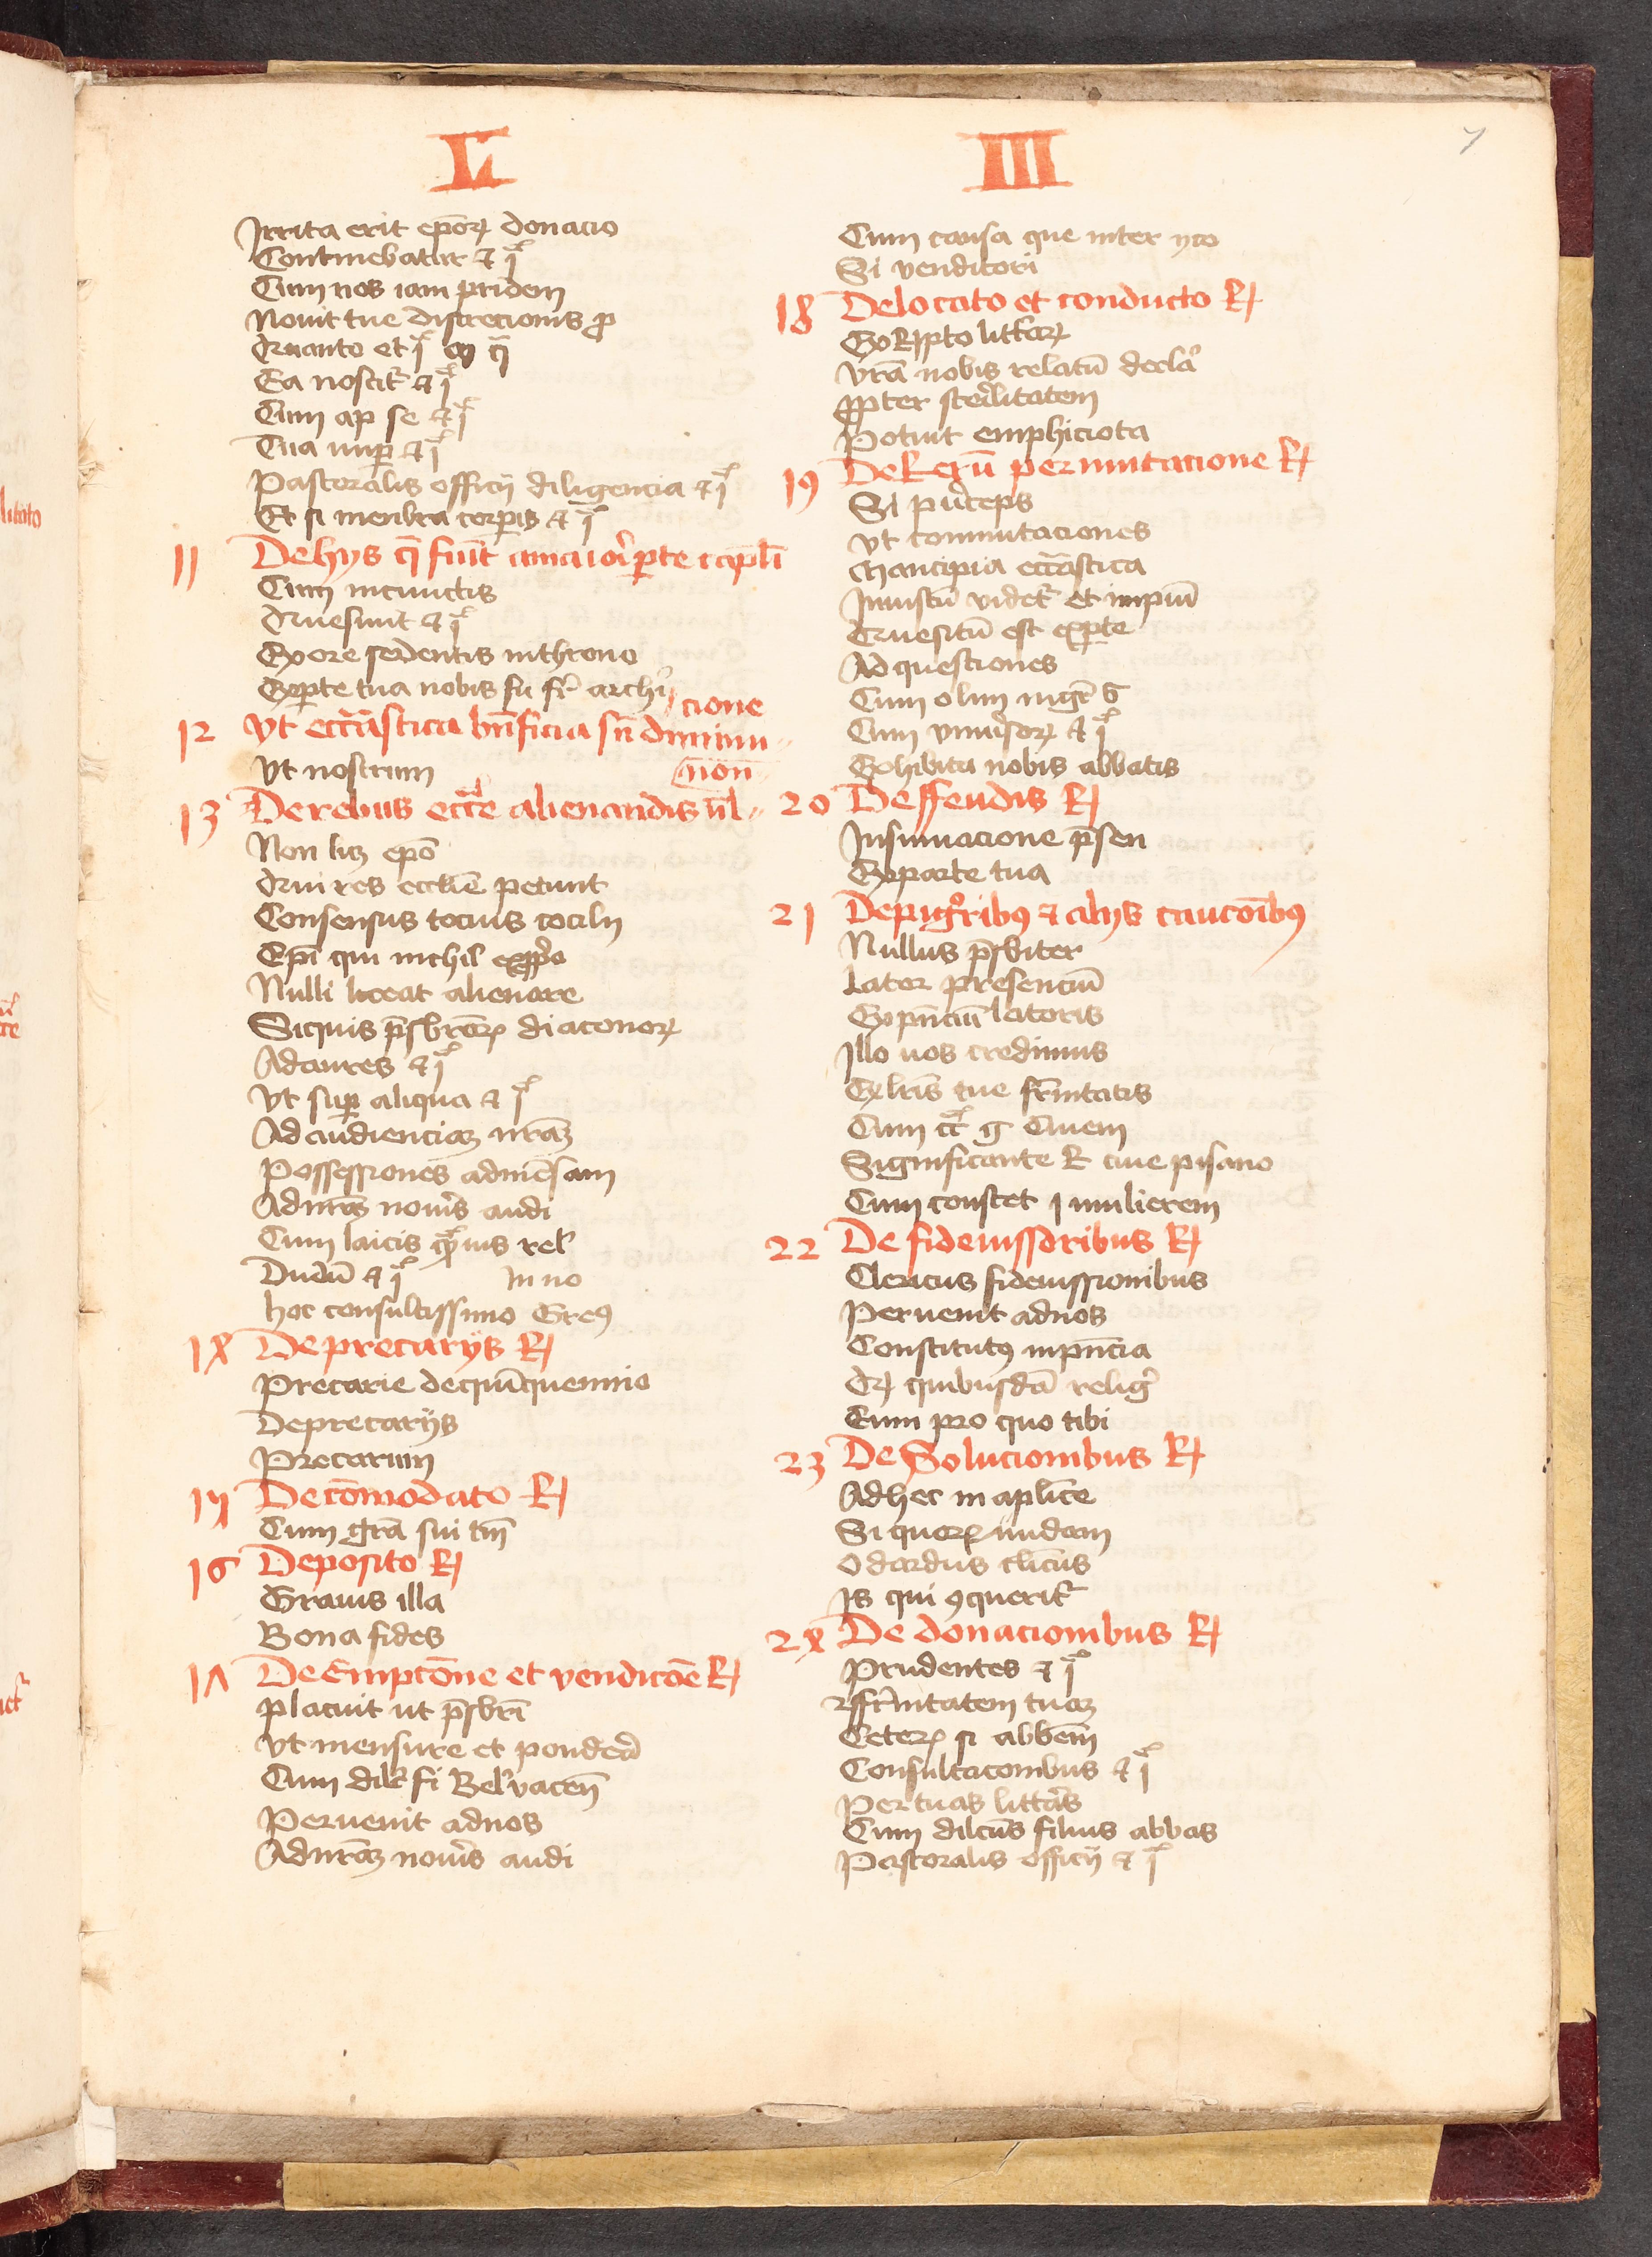 L III
7
Irrita erit epōrꝝ donacio
Continebatur ⁊ iͣ
Cum nos iam pridem
Nouit tue discrecionis ꝓ
Quanto et iͣ
Ea noscitʳ ⁊ iͣ
Cum ap se ⁊ iͣ
Tua nuꝑ ⁊ iͣ
Pastoralis officij diligencia ⁊ iͣ
Et si membra corꝑis ⁊ iͣ
11 De hys q̄ fiūt a maiori ꝑte capl̄i
Cum incunctis
Quesiuit ⁊ iͣ
Ex ore sedentis in throno
Ex ꝑte tua nobis fu fr̄ archi
12 Vt eccᷓastica bn̄ficia sn̄ diminu
cione
Vt nostrum
13 De rebus eccᷓe alienandis ul̄
non̄
Non licꝫ ep̄o
Qui res eccᷓie petunt
Consensus tocius cocilij
Ep̄i qui nichil exp̱p̱o
Nulli liceat alienare
Siquis p̄sbrōrꝝ diaconorꝝ
Ad aures ⁊ iͣ
Vt suꝑ aliqua ⁊ iͣ
Ad audienciaꝫ nr̄aꝫ
Possessiones ad mēsam
Ad nr̄aꝫ nou̾is audi
Cum laicis rel
Dudū ⁊ iͣ in no
hoc consultissimo Greꝰ
14 De precarijs Rꝫ
Precarie de quīquennio
De precarijs
Precarium
15 De cōmodato Rꝫ
Cum gr̄a sui tm̄
16 Deposito Rꝫ
Grauis illa
Bona fides
17 De Empcōne et vendicōe Rꝫ
Placuit ut p̄sbri
Vt mensure et pondera
Cum dilc̄ fi Beluacen̄
Peruenit ad nos
Ad nr̄aꝫ nou̾is audi
Cum causa que inter yco
Si venditori
18 De locato et conducto Rꝫ
Ex Rꝑpto litterarꝝ
Vr̄a nobis relatū decla
Ꝓpter sterilitatem
Potuit emphiciota
19 De Rerū permutacione Rꝫ
Si pͥnceps
Vt commutaciones
Mancipia eccᷓastica
Iniustū videtʳ et impiū
Quesitū est ex ꝑte
Ad questiones
Cum olim mgr̄ G
Cum vniu̾sorꝝ ⁊ iͣ
Exhibita nobis abbatis
20 De ffeudis Rꝫ
Insinuacione p̄sen
Ex parte tua
21 De pignoribꝰ ⁊ alijs caucōibꝰ
Nullus p̄sbiter
Lator presenciū
Ex pn̄ciū latoris
Illo uos credimus
Ex lr̄is tue fr̄nitatis
Cum cͣ g Ciuem
Significante R ciue pisano
Cum constet i mulierem
22 De fideiussoribus Rꝫ
Clericus fideiussionibus
Peruenit ad nos
Constitutꝰ in pn̄cia
Ex quibusdā relig̾
Cum pro quo tibi
23 De Solucionibus Rꝫ
Ad hec in aplice
Si quorꝝ iudam
Odardus clicus
Is qui ꝯqueritʳ
24 De donacionibus Rꝫ
Prudentes ⁊ iͣ
ffr̄nitatem tuaꝫ
Ceterꝝ si abbem̄
Consultacionibus ⁊ iͣ
Per tuas litteras
Cum dilcūs filius abbas
Pastoralis officij ⁊ iͣ